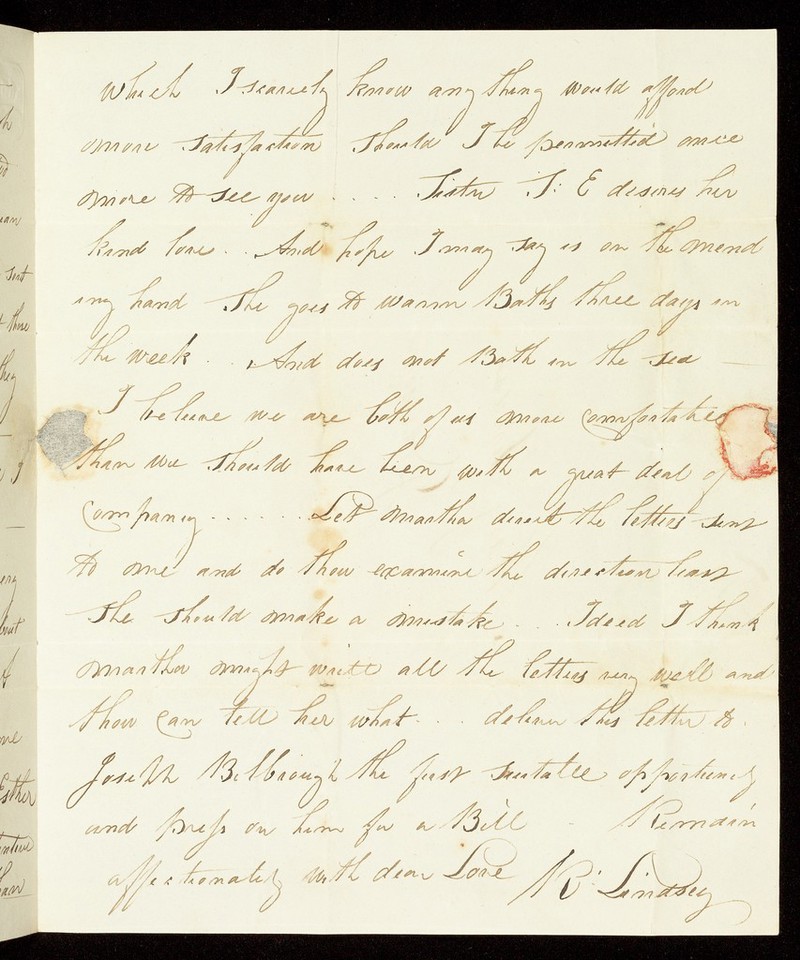 which I scarcely know any thing would afford
more satisfaction should I be permitted once
more to see you .... Sister S: E desires her
kind love .. And hope I may say is on the mend
ing hand She goes to warm Baths three days in
the week .. And does not Bath in the sea —
I beleive we are both of us more comfortable
than we should have been with a great deal of
company ....... Let martha direct the letters sent
to me and do thou examine the direction least
She should make a mistake ... Ideed I think
martha might write all the letters very well and
thou can tell her what ... deliver this letter to
Joseph the first suitable opportunity
and press on him for a Bill - Remain
affectionately with dear Love R: Lindsey
sent
Esther